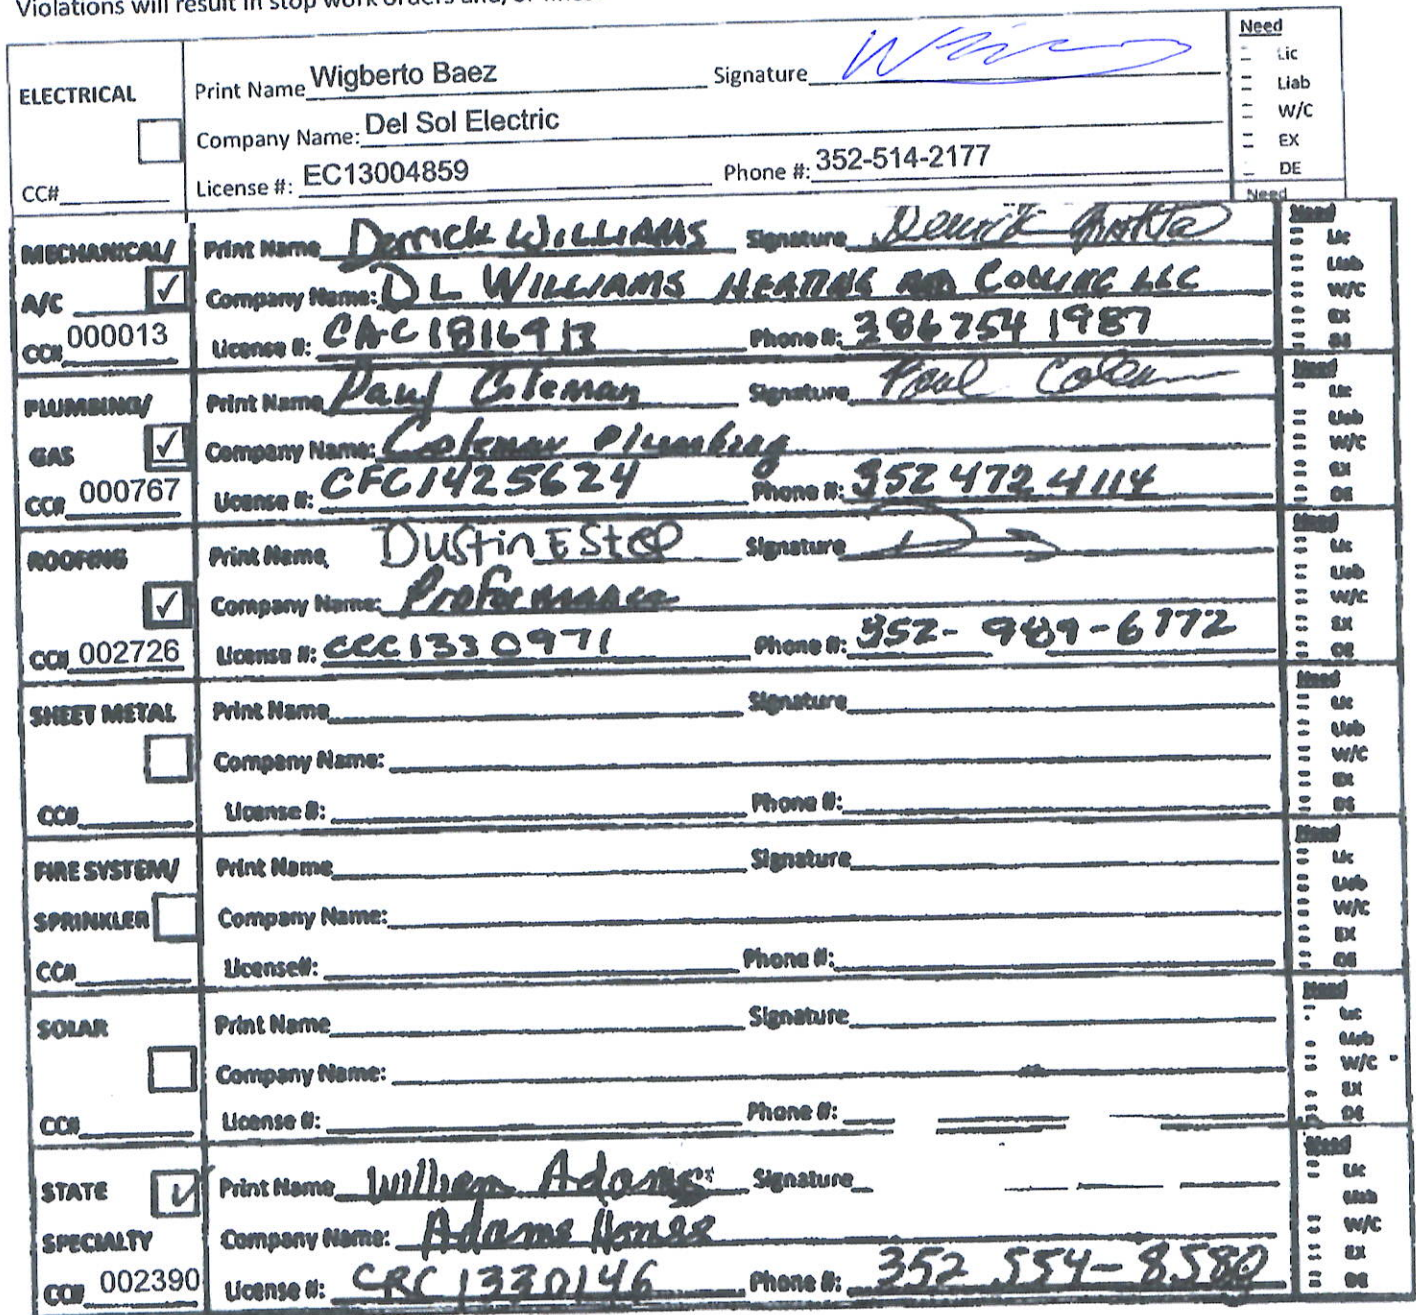 Violations will result in stop work orders and/or fines
ELECTRICAL
CC#
Print Name Wigberto Baez Signature
Company Name: Del Sol Electric
License #: EC13004859 Phone #: 352-514-2177
Need
Lic
Liab
W/C
EX
DE
Need
MECHANICAL/
A/C ✓
CC# 000013
Print Name Derrick WILLIAMS Signature Derrick
Company Name: DL WILLIAMS HEATING AND COOLING LLC
License #: CAC1816913 Phone #: 386 754 1987
Need
Lic
Liab
W/C
EX
DE
PLUMBING/
GAS ✓
CC# 000767
Print Name Paul Coleman Signature Paul
Company Name: Coleman Plumbing
License #: CFC1425624 Phone #: 352 472 4114
Need
Lic
Liab
W/C
EX
DE
ROOFING
✓
CC# 002726
Print Name Dustin Estep Signature
Company Name: Proformance
License #: CCC1330971 Phone #: 352-
Need
Lic
Liab
W/C
EX
DE
SHEET METAL
CC#
Print Name Signature
Company Name:
License #: Phone #:
Need
Lic
Liab
W/C
EX
DE
FIRE SYSTEM/
SPRINKLER
CC#
Print Name Signature
Company Name:
License#: Phone #:
Need
Lic
Liab
W/C
EX
DE
SOLAR
CC#
Print Name Signature
Company Name:
License #: Phone #:
Need
Lic
Liab
W/C
EX
DE
STATE ✓
SPECIALTY
CC# 002390
Print Name William Adams Signature
Company Name: Adams Homes
License #: CRC1330146 Phone #: 352 554-8580
Need
Lic
Liab
W/C
EX
DE